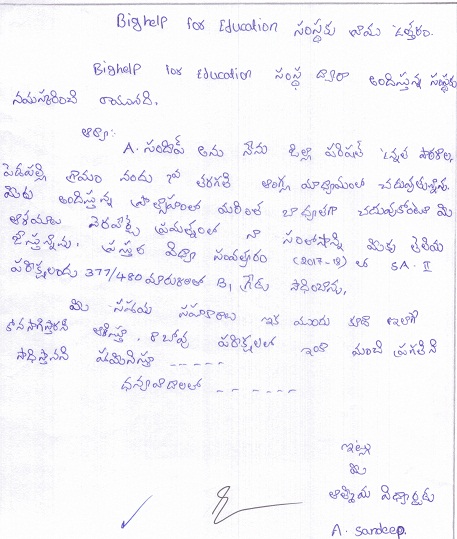 Bighelp for Education సంస్థకు వ్రాయు ఉత్తరం.
Bighelp for Education సంస్థ ద్వారా అందిస్తున్న సంస్థకు
నమస్కరించి వ్రాయునది.
ఆర్యా:-
A. సందీప్ అను నేను జిల్లా పరిషత్ ఉన్నత పాఠశాల
పెదపల్లి గ్రామం నందు తరగతి ఆంగ్ల మాధ్యమంలో చదువుతున్నాను.
మీరు అందిస్తున్న ప్రోత్సాహంతో మరింత బాధ్యతగా చదువుకోంటూ మీ
ఆశయాలు నెరవేర్చే ప్రయత్నంలో నా సంతోషాన్ని మీకు తెలియ
జేస్తున్నాను. ప్రస్తుత విద్యా సంవత్సరం (2017-18) లో SA-II
పరీక్షలందు 377/480 మారులతో B1 గ్రేడు సాధించాను,
మీ సహాయ సహకారాలు ఇక ముందు కూడా ఇలాగే
కొనసాగిస్తారని ఆశిస్తూ, రాబోవు పరీక్షలలో ఇంకా మంచి ప్రగతిని
సాధిస్తానని హామినిస్తూ -----
ధన్యవాదాలతో -------
ఇట్లు
మీ
ఆత్మీయ విద్యార్థి
A. Sandeep.